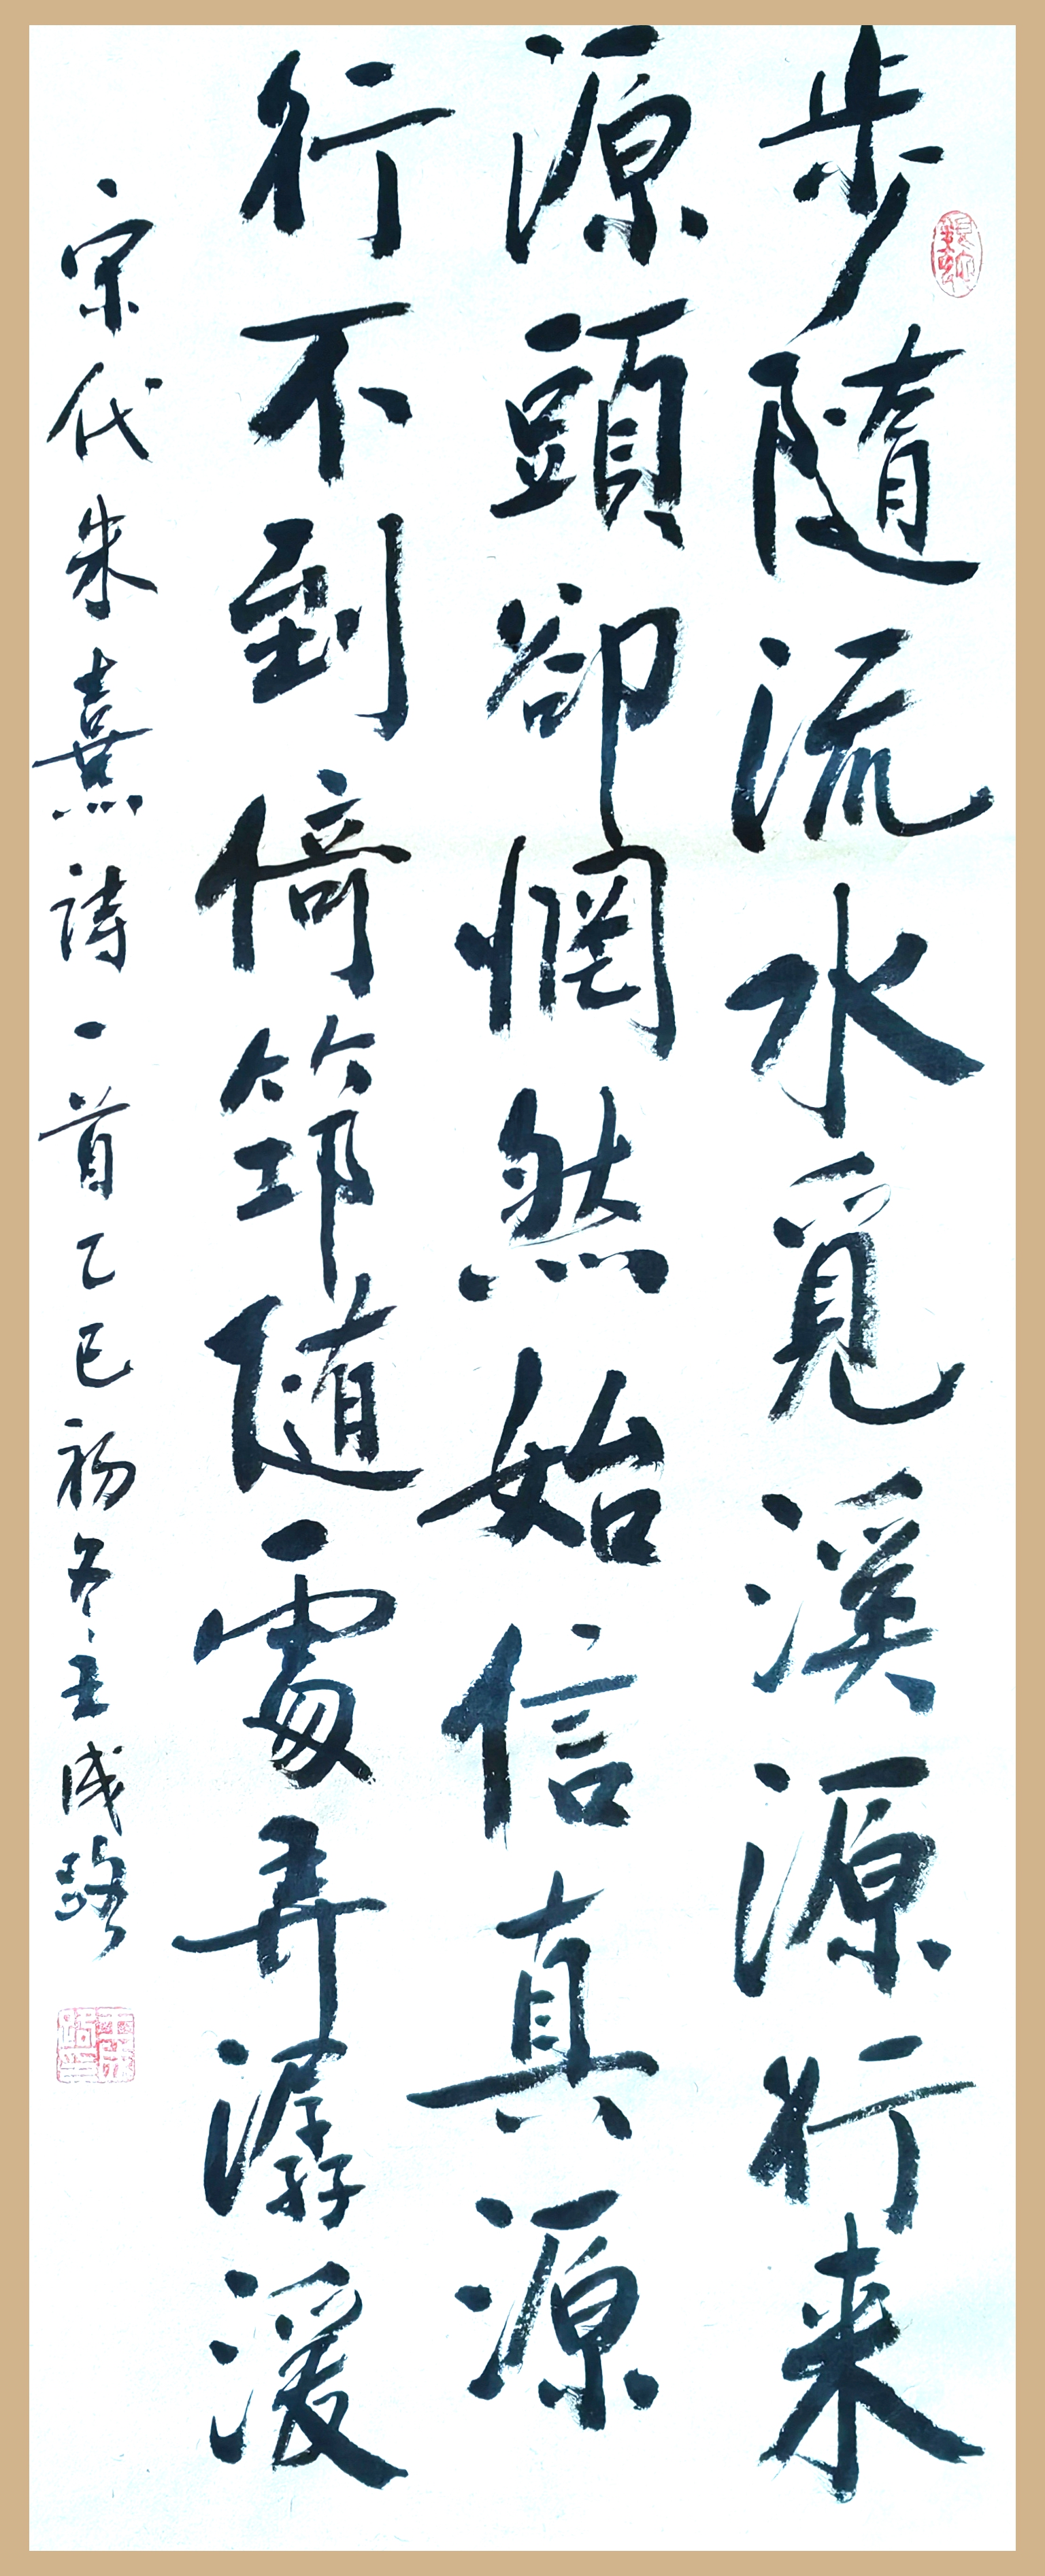 步隨流水覓溪源行来
源頭卻惘然始信真源
行不到倚筇随處弄潺湲
宋代朱熹詩一首乙巳初冬王成路